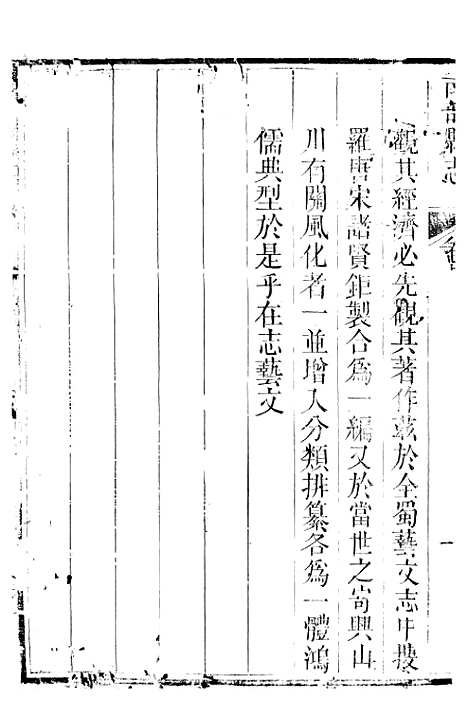 南部縣志
觀其經濟必先觀其著作茲於全蜀藝文志中搜
羅唐宋諸賢鉅製合爲一編又於當世之尚興山
川有關風化者一並增入分類排纂各爲一體鴻
儒典型於是乎在志藝文
一